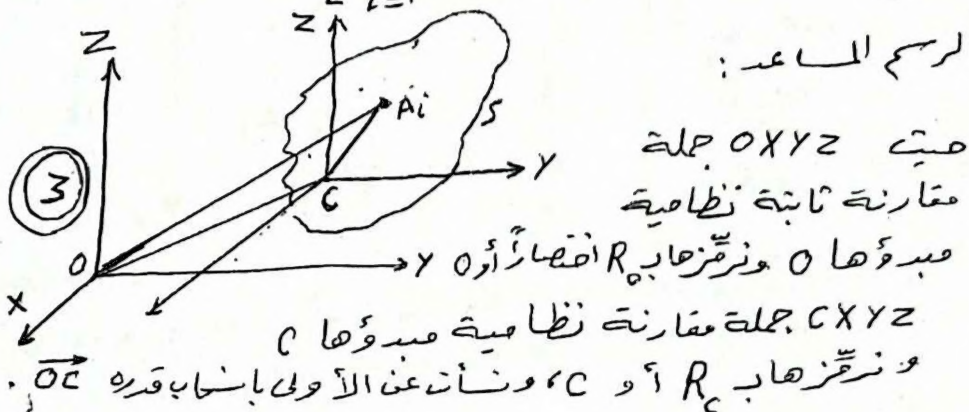 i=1
Z
Z
لرسم المساعد :
Ai
S
حيث OXYZ جملة
3
Y
C
مقارنة ثابتة نظامية
O
Y
مبدؤها O ونرمّزها بـ R₀ اختصاراً أو O
X
CXYZ جملة مقارنة نظامية مبدؤها C
ونرمّزها بـ R_C أو C، ونشأت عن الأولى بانسحاب قدره OC .